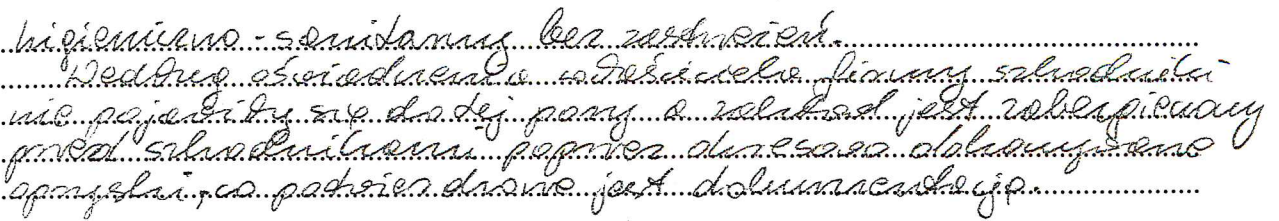 higieniczno-sanitarny bez zastrzeżeń.
Według oświadczenia właściciela firmy szkodniki
nie pojawiły się do tej pory a zakład jest zabezpieczany
przed szkodnikami poprzez okresowo dokonywane
opryski, co potwierdzone jest dokumentacją.